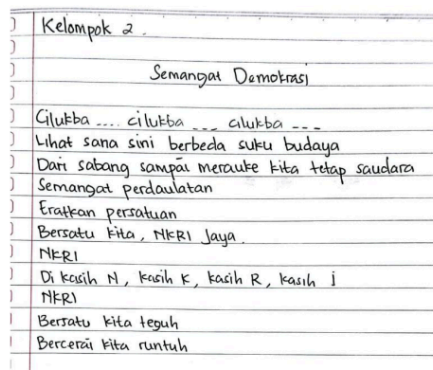 Kelompok 2.
Semangat Demokrasi
Cilukba .... cilukba --- cilukba ---
Lihat sana sini berbeda suku budaya
Dari sabang sampai merauke kita tetap saudara
Semangat perdaulatan
Eratkan persatuan
Bersatu kita, NKRI Jaya.
NKRI
Di kasih N, kasih K, kasih R, kasih i
NKRI
Bersatu kita teguh
Bercerai kita runtuh